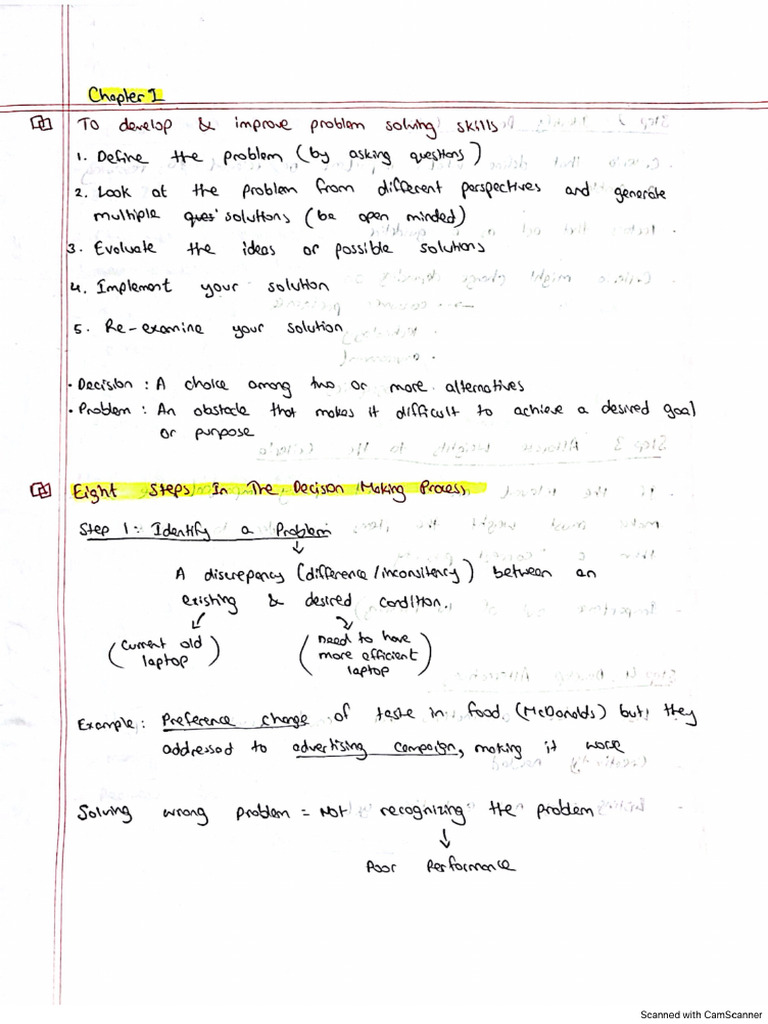 Chapter 1
To develop & improve problem solving skills
1. Define the problem (by asking questions)
2. Look at the problem from different perspectives and generate
multiple ques solutions (be open minded)
3. Evaluate the ideas or possible solutions
4. Implement your solution
5. Re-examine your solution
• Decision : A choice among two or more alternatives
• Problem : An obstacle that makes it difficult to achieve a desired goal
or purpose
Eight Steps In The Decison Making Process
Step 1: Identify a Problem
A discrepancy (difference/inconsitency) between an
existing & desired condition.
(current old laptop) (need to have more efficient laptop)
Example: Preference change of taste in food (McDonalds) but they
addressed to advertising campaign, making it work
Solving wrong problem = Not recognizing the problem
Poor Performance
Scanned with CamScanner